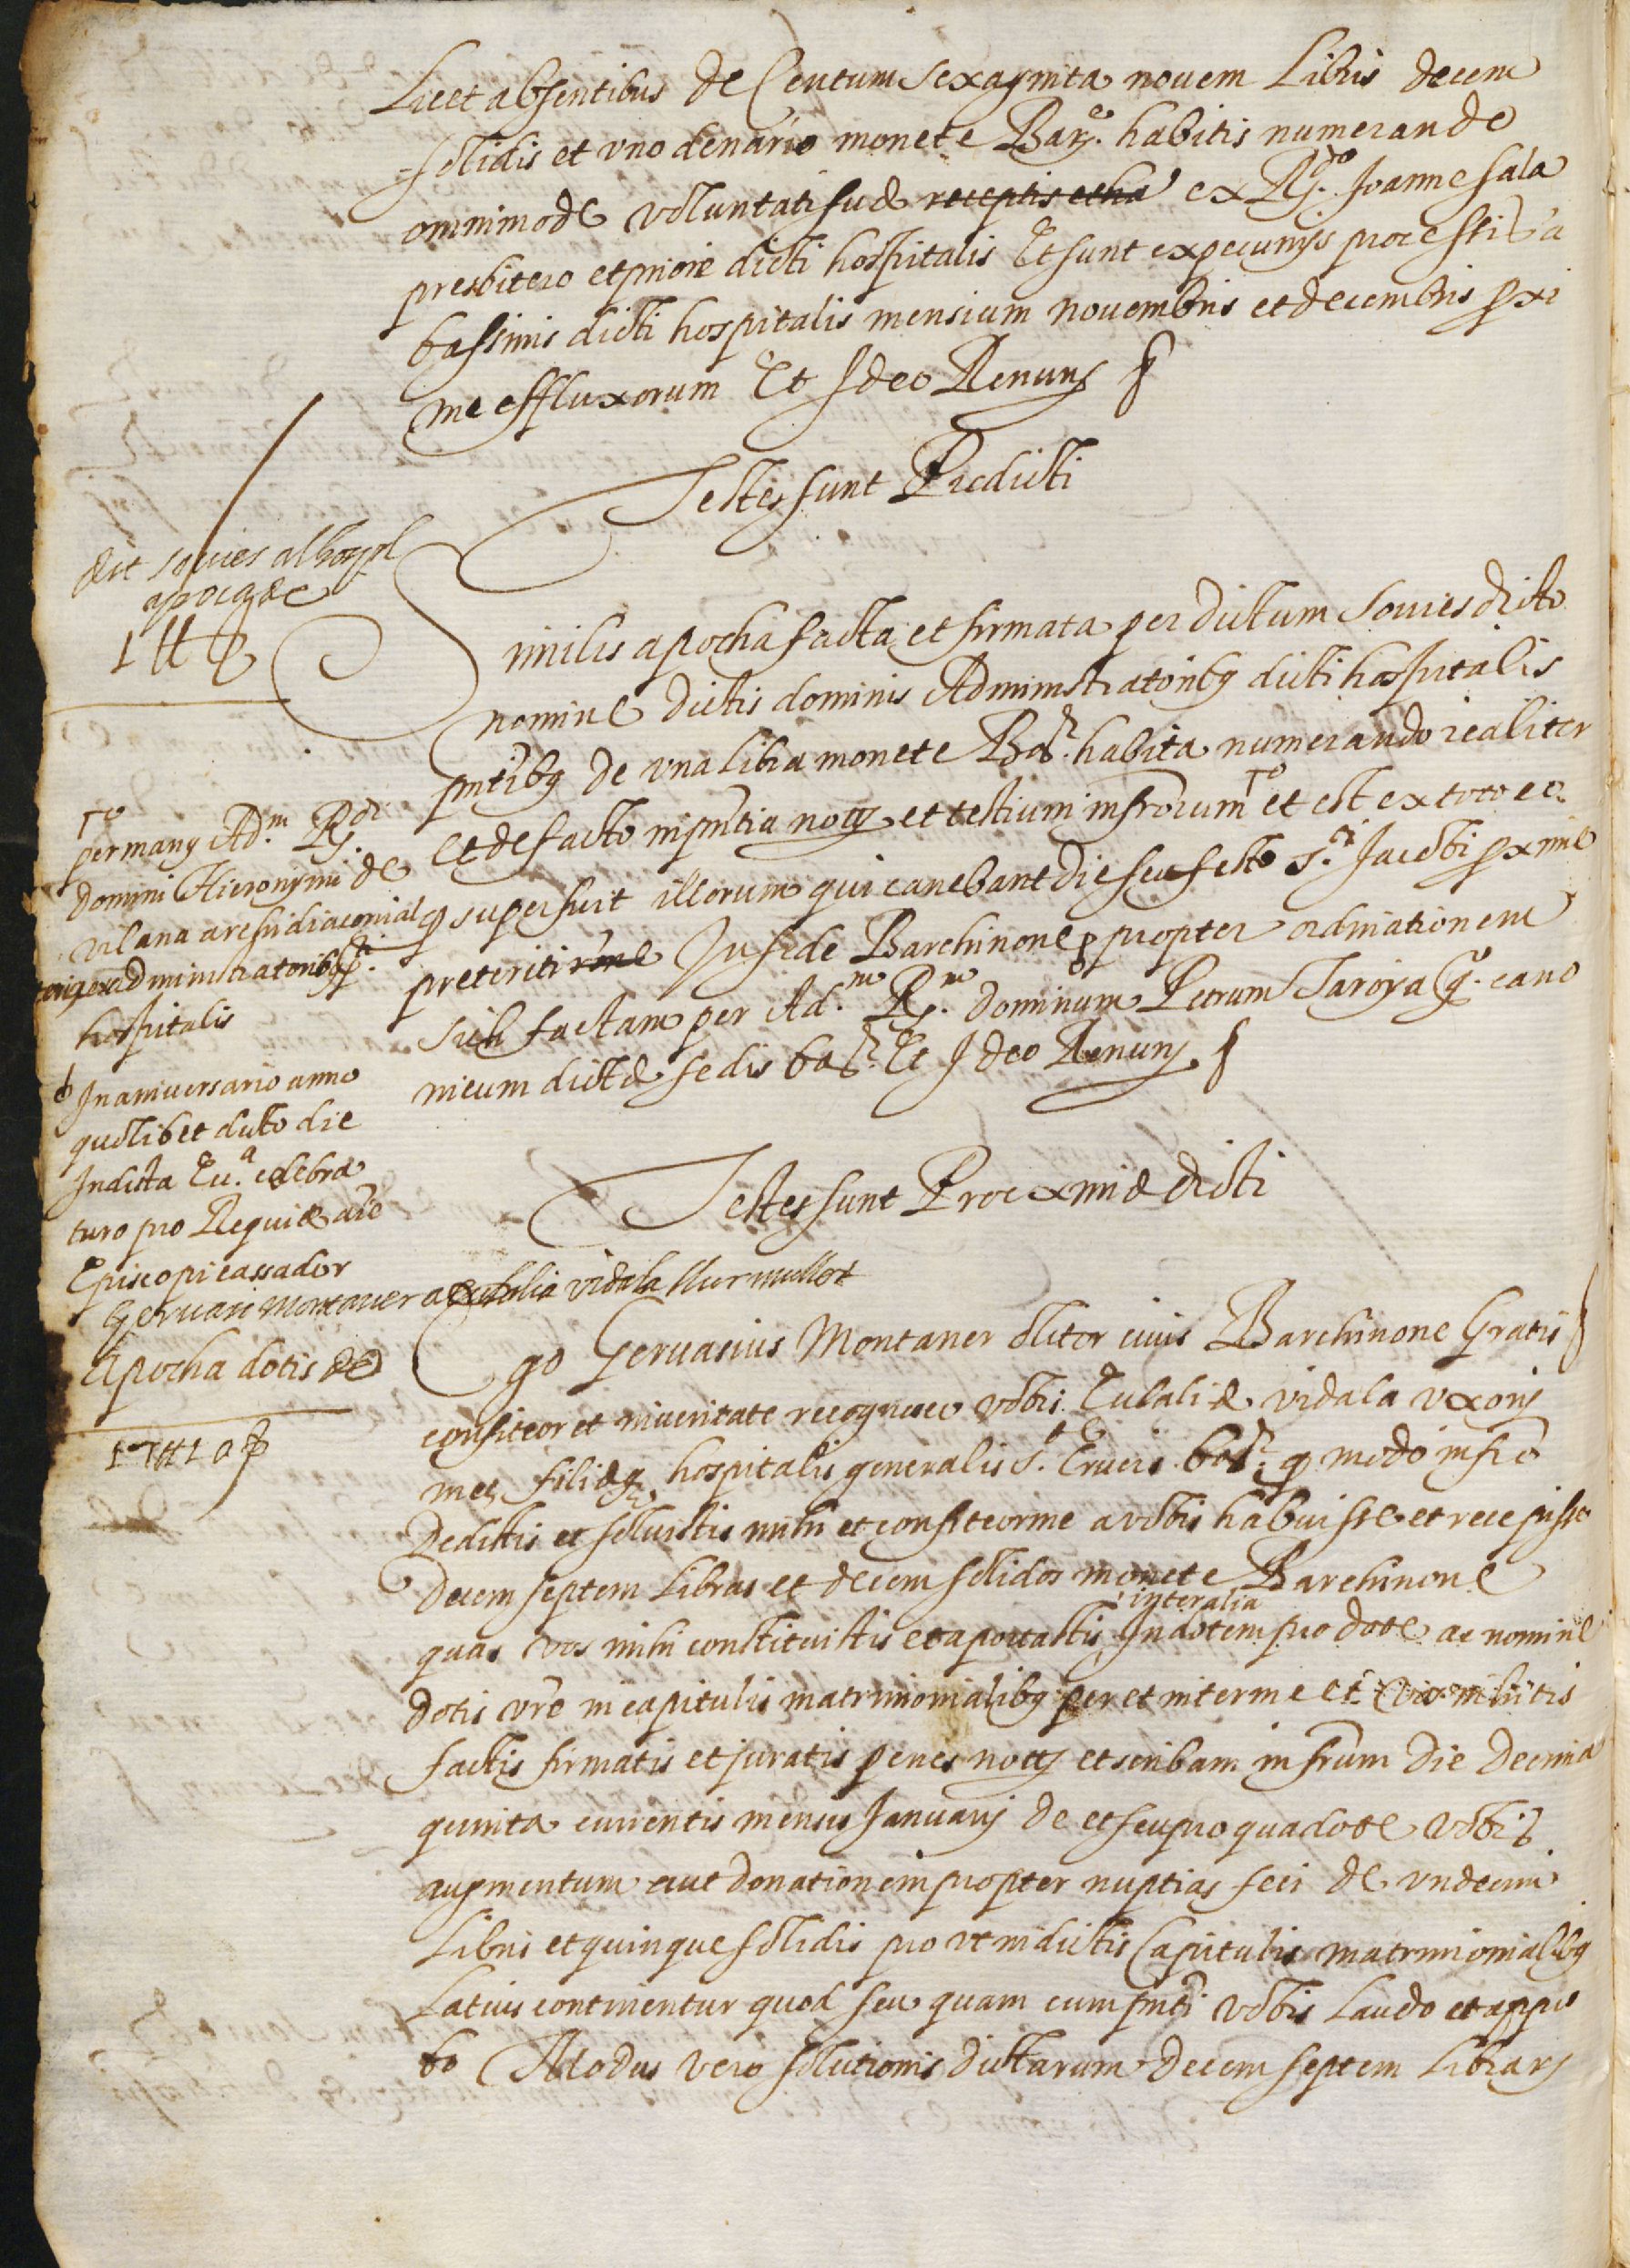 Licet absentibus de Centum sexaginta novem Libris decem
solidis et vno denario monete Barⁿᵉ. habitis numerande
omnimode voluntati sue receptis et ha ex Rᵈᵒ. Joanne sala
presbitero et priore dicti hospitalis Et sunt ex pecunijs processi
bassinis dicti hospitalis mensium novembris et decembris proxi
me effluxorum Et Ideo Renunͥ §
Testes sunt Predicti
dit sovies al hospl
apoca de
1 ₶ ẞ
Similis apocha facta et firmata per dictum Sovies dicto
nomine dictis dominis Administratoribꝫ dicti hospitalis
pntibꝫ de vna libra monete Barⁿ. habita numerando realiter
et de facto in pntia notͥ et testium infrorum ꜛᵒ et est ex toto eo
ꝙ superfuit illorum qui canebant die seu festo sᵗⁱ. Jacobi proxime
preteriti in sede Barchinone ɸ propter ordinationem
sich factam per Adᵐ. Rᵐ. dominum Petrum Taroja qᵒ. cano
nicum dicte sedis barⁿ. Et Ideo Renunͥ. §
ꜛᵒ per manꝫ Adᵐ. Rᵈⁱ.
Domini Hieronymi de
vilana archidiaconi al
teriꝫ ex administratoribꝫ dⁱ.
hospitalis
ɸ In aniversario anno
quolibet dicto die
In dicta Euᵃ. celebra
turo pro Requie aie
Episcopi cassador
Testes sunt Proxime dicti
Gervasi Montaner a Eulalia vidala llur muller
Apocha dotis de
17 ₶ 10 ẞ
Ego Gervasius Montaner olitor civis Barchinone Gratis §
confiteor et in veritate recognosco vobis Eulalie vidala vxori
mee filieqꝫ hospitalis generalis Sᵗᵉ. Crucis barⁿ. ꝙ modo infro
Dedistis et solvistis mihi et confiteor me a vobis habuisse et recepisse
Decem septem Libras et decem solidos monete Barchinone
quas vos mihi constituistis et aportastis inter alia In dotem pro dote ac nomine
dotis vre in capitulis matrimonialibꝫ per et inter me et vos initis
factis firmatis et juratis penes notͥ et scribam infrum Die Decima
quinta currentis mensis Januarij de et seu pro qua dote vobis
augmentum aut donationem propter nuptias feci de vndecim
Libris et quinque solidis pro vt in dictis Capitulis matrimonialibꝫ
Latius continentur quod seu quam cum pnti vobis Laudo et appro
bo Modus vero solutionis dictarum decem septem Librarͥ